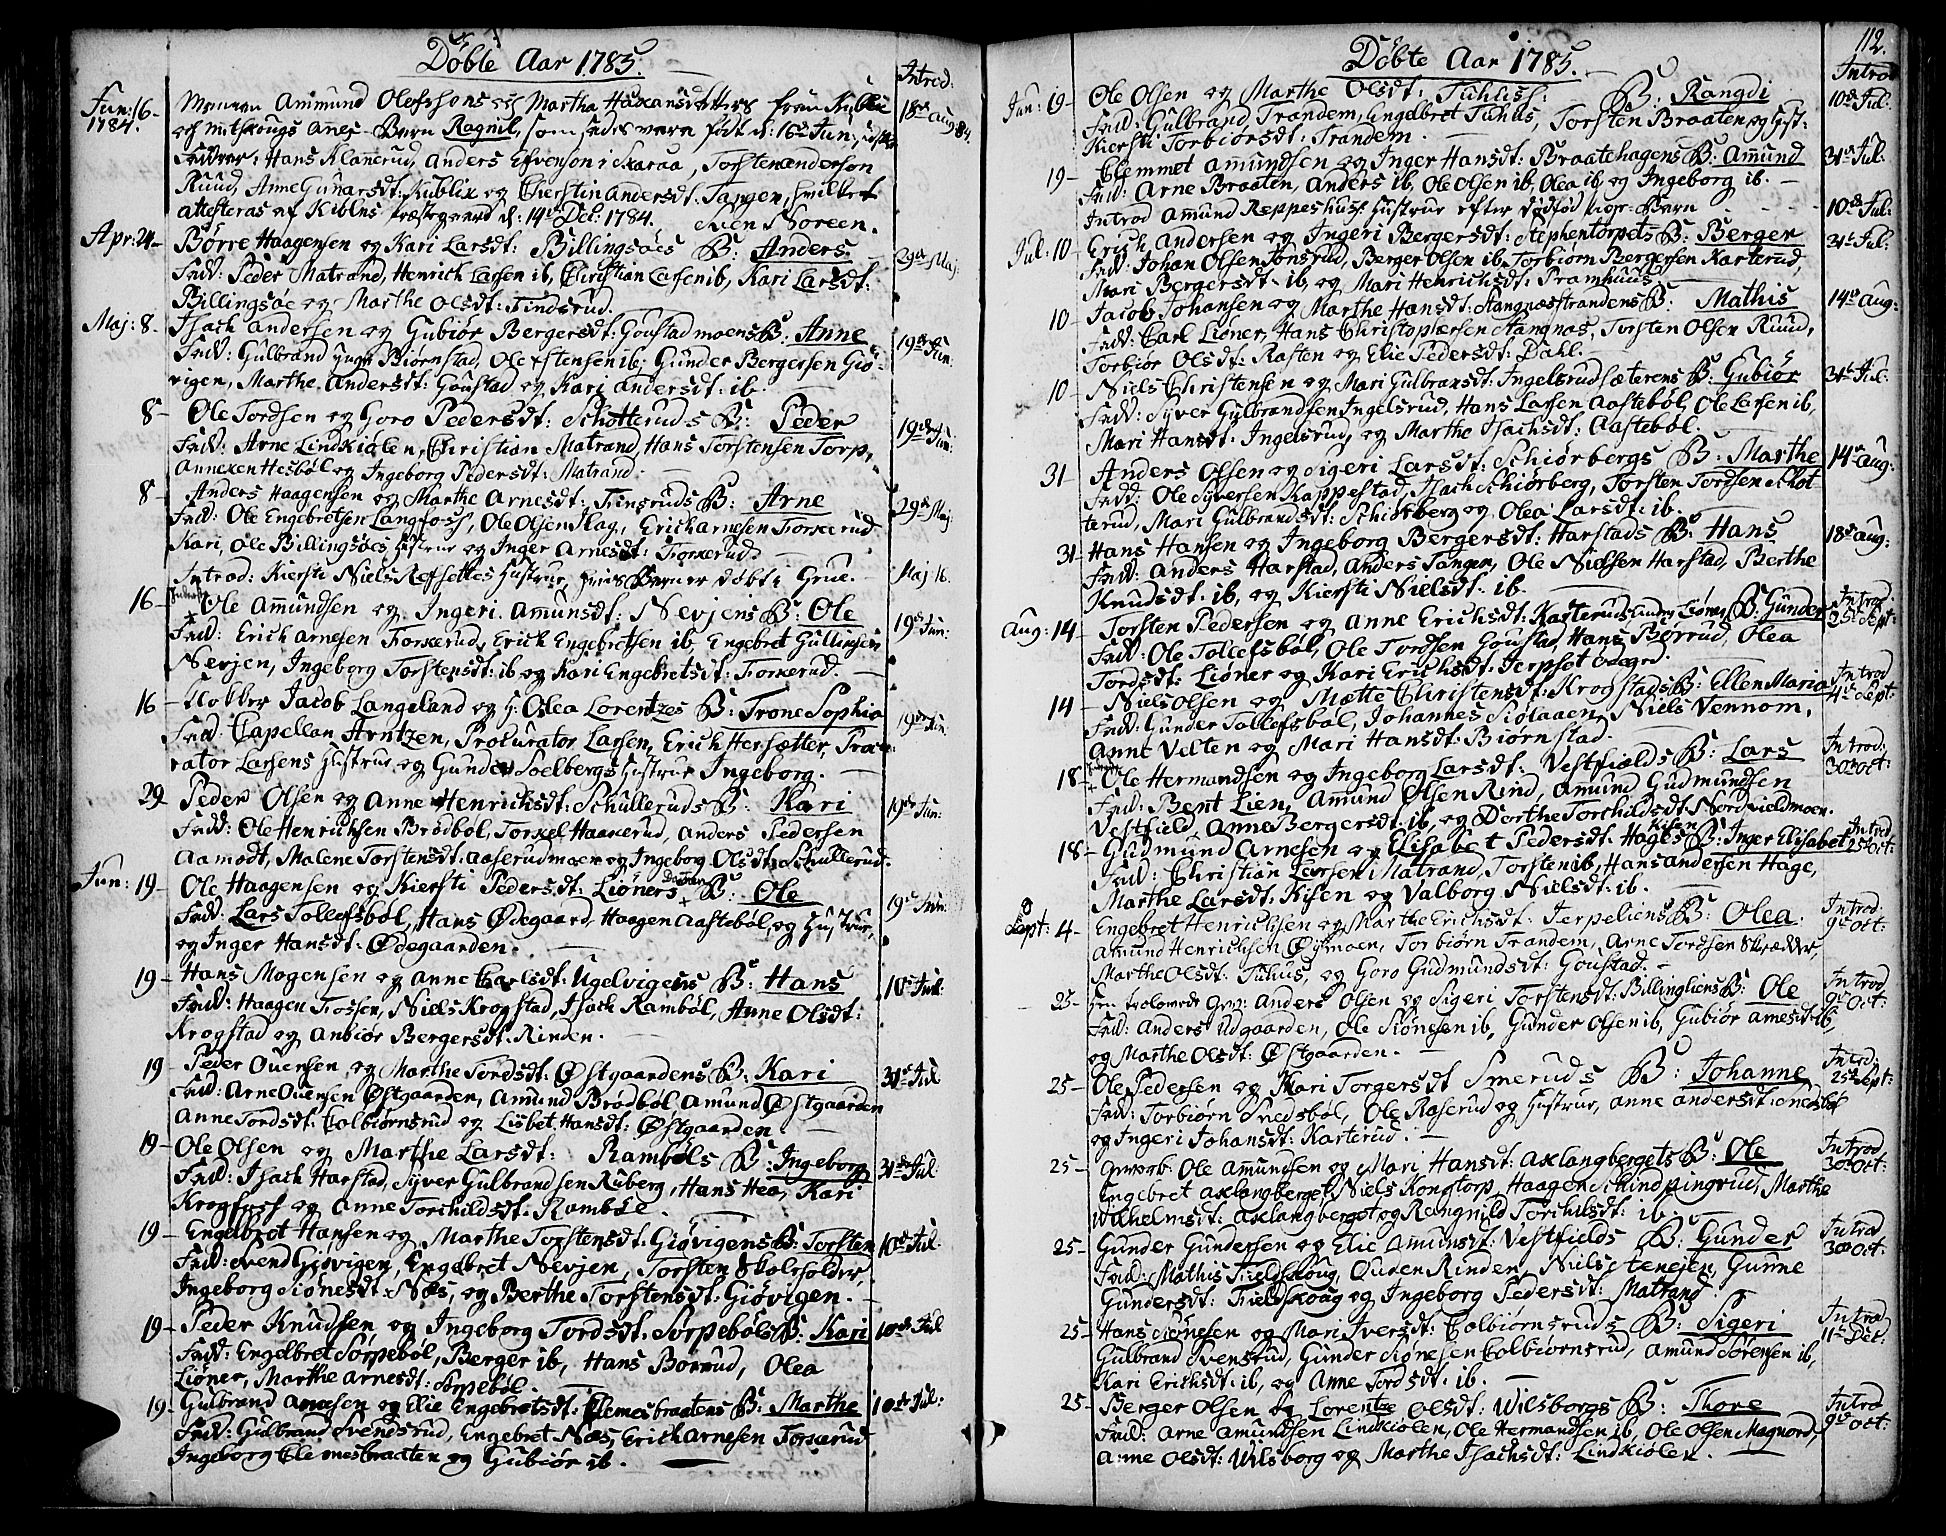 Døbte Aar 1785.
Introd:
Jun: 16-
1784.
Ammund Olofssons och Martha Håkansdotters från
Barn Ragnil, som sades vara född d: 16de Jun,
18de Aug: 84.
Faddrar: Hans Klannerud, Anders Efvenson i Skaraa, Torsten anderson
Ruud, Anne Gunarsdt: Kublix og Chierstin andersdt: Tangen, hvilket
attesteras af Prestegaard d: 14de Dec: 1784. Sven Noreen.
Apr: 24- Børre Haagensen og Kari Larsdt: Billingsöes B: Anders
29de Maj:
Fadd: Peder Matrand, Henrich Larsen ib, Christian Larsen ib, Kari Larsdt:
Billingsöe og Marthe Olsdt: Tindsrud.
Maj: 8- Isach Andersen og Gubiør Bergersdt: Goustadmoens B: Anne
19de Jun:
Fadd: Gulbrand Biørnstad, Ole Estensen ib, Gunder Bergersen Giø-
vigen, Marthe Andersdt: Goustad og Kari andersdt: ib.
8- Ole Tordsen og Goro Pedersdt: Schotteruds B: Peder
19de Jun:
Fadd: Arne Lindkiølen, Christian Matrand, Hans Torstensen Torp,
Anne Hesbøl og Ingeborg Pedersdt: Matrand.
8- Anders Haagensen og Marthe Arnesdt: Tinsruds B: Arne
29de Maj:
Fadd: Ole Engebretsen Langfoss, Ole Olsen Slag, Erich Arnesen Torkerud
Kari, Ole Billingsöes Hustrue og Inger Arnesdt: Torkerud.
Introd: Kiersti Niels Refsettes Hustrue, hvis Barn er døbt i Grue.
Maj 16.
16- Ole Amundsen og Ingeri Amunsdt: Nevjens B: Ole
19de Jun:
Fadd: Erich Arnesen Torkerud, Erich Engebretsen ib, Engebret Gullingsen
Nevjen, Ingeborg Torstensdt: ib og Kari Engebretsdt: Torkerud.
16- Klokker Jacob Langeland og H: Olea Lorentzes B: Trone Sophia
19de Jun:
Fad: Capellan Arntzen, Procurator Larsen, Erich Hersætter, Procu-
rator Larsens Hustrue og Gunder Soelbergs Hustrue Ingeborg.
29 Peder Olsen og Anne Henrichsdt: Schulleruds B: Kari
19de Jun:
Fadd: Ole Henrichsen Brødbøl, Torkel Haakerud, Anders Pedersen
Aamodt, Malene Torstensdt: Aaserudmoen og Ingeborg Olsdt: Schullerud.
Jun: 19- Ole Haagensen og Kiersti Pedersdt: Liøners B: Ole
19de Jun:
Fadd: Lars Tollefsbøl, Hans Ødegaard, Haagen Aastebøl og Hustrue,
og Inger Hansdt: Ødegaarden.
19- Hans Mogensen og Anne Carlsdt: Ugelvigens B: Hans
10de Jul:
Fadd: Haagen Fossen, Niels Krogstad, Isach Rambøl, Anne Olsdt:
Krogstad og Anbiør Bergersdt: Rinden.
19 Peder Ouensen og Marthe Tordsdt: Østgaardens B: Kari
31de Jul
Fad: Arne Ouensen Østgaarden, Amund Brødbøl Amund Østgaarden
Anne Tordsdt: Colbiørnsrud og Lisbet Hansdt: Østgaarden.
19- Ole Olsen og Marthe Larsdt: Rambøls B: Ingeborg
31de Jul
Fad: Isach Harstad, Syver Gulbrandsen Ruberg, Hans Hea, Kari
Krogfoss og Anne Torchildsdt: Rambøl.
19- Engelbret Hansen og Marthe Torstensdt: Giøvigens B: Torsten
10de Jul:
Fad: Svend Giøvigen, Engebret Nevjen, Torsten Skoleholder,
Ingeborg Siønesdt: Næs, og Berthe Torstensdt: Giøvigen.
19- Peder Knudsen og Ingeborg Tordsdt: Sørpebøls B: Kari
10de Jul
Fadd: Engelbret Sørpebøl, Berger ib, Hans Borrud, Olea
Liøner, Marthe Arnesdt: Sørpebøl.
19- Gulbrand Arnesen og Elie Engebretsdt: Clemesbraatens B: Marthe
10de Jul:
Fadd: Gulbrand Svendsrud, Engebret Næs, Erich Arnesen Torkerud
Ingeborg Clemesbraaten og Gubiør ib.
Døbte Aar 1785.
112.
Introd
Jun: 19- Ole Olsen og Marthe Olsdt: Tuhuss: B: Rangdi
10de Jul:
Fad: Gulbrand Trandem, Engelbret Tuhus, Torsten Braaten og Hust:
Kiersti Torbiørsdt: Trandem.
19- Clemmet Amundsen og Inger Hansdt: Braatehagens B: Amund
31de Jul:
Fad: Arne Braaten, Anders ib, Ole Olsen ib, Olea ib, og Ingeborg ib.
Introd Amund Reppes Hustrue efter dødfød Barn
10de Jul:
Jul: 10- Erich Andersen og Ingeri Bergersdt: Stephentorpets B: Berger
31de Jul:
Fad: Johan Olsen Tonsrud, Berger Olsen ib, Torbiørn Bergersen Karterud,
Mari Bergersdt: ib, og Mari Henrichsdt: Pramhuus.
10- Jacob Johansen og Marthe Hansdt: Stangnæsstrandens B: Mathis
14de Aug:
Fadd: Carl Liøner, Hans Christophersen Stangnæs, Torsten Olsen Ruud,
Torbiør Olsdt: Rasten og Elie Pedersdt: Dahl.
10- Niels Christensen og Mari Gulbransdt: Ingelsrudsæterens B: Gubiør
31de Jul:
Fadd: Syver Gulbrandsen Ingelsrud, Hans Larsen Aastebøl, Ole Larsen ib,
Mari Hansdt: Ingelsrud, og Marthe Isachsdt: Aastebøl.
31- Anders Olsen og Sigeri Larsdt: Schiørbergs B: Marthe
14de Aug:
Fadd: Ole Syversen Kappestad, Isach Schiørberg, Torsten Tordsen Schot-
terud, Mari Gulbrandsdt: Schiørberg og Olea Larsdt: ib.
31 Hans Hansen og Ingeborg Bergersdt: Harstads B: Hans
18de Aug:
Fadd: Anders Harstad, Anders Tangen, Ole Nielsen Harstad, Berthe
Knudsdt: ib, og Kiersti Nielsdt: ib.
Aug: 14- Torsten Pedersen og Anne Erichsdt: Karterud Liøner B: Gunder
Introd
25de Sept:
Fad: Ole Tollefsbøl, Ole Tordsen Goustad, Hans Børrud, Olea
Tordsdt: Liøner og Kari Erichsdt: Jerpset ødegrd.
14- Niels Olsen og Mætte Christensdt: Krogstads B: Ellen Maria
Introd
4de Sept:
Fad: Gunder Tollefsbøl, Johannes Siølaaen, Niels Vennom,
Anne Velten og Mari Hansdt: Biørnstad.
18- Ole Hermandsen og Ingeborg Larsdt: Vestfields B: Lars
Introd:
30de Oct:
Fad: Bent Lien, Amund Olsen Rind, Amund Gudmundsen
Vestfield, Anne Bergersdt: ib, og Dorthe Torchildsdt: Nordvieldmoen.
18- Gudmund Arnesen og Elisabet Pedersdt: Hages B: Inger Elisabet
Introd
25de Oct:
Fad: Christian Larsen Matrand, Torsten ib, Hans Andersen Hage,
Marthe Larsdt: Kisen og Valborg Nielsdt: ib.
Sept: 4- Engebret Henrichsen og Marthe Erichsdt: Jerpeliens B: Olea
Introd:
9de Oct:
Amund Henrichsen Øiemoen, Torbiørn Trandem, Arne Tordsen Skrædder,
Marthe Olsdt: Tuhus, og Goro Gudmundsdt: Goustad.
25- Anders Olsen og Sigeri Torstensdt: Billingliens B: Ole
Introd
9de Oct:
Fad: Anders Udgaarden, Ole Siønesen ib, Gunder Olsen ib, Gubiør Arnesdt: ib,
og Marthe Olsdt: Østgaarden.
25- Ole Pedersen og Kari Torgersdt Smeruds B: Johanne
Introd:
25de Sept:
Fad: Torbiørn Tvedsbøl, Ole Raserud og Hustrue, Anne Andersdt:
og Ingeri Johansdt: Karterud.
25- Ole Amundsen og Mari Hansdt: Axlangbergets B: Ole
Introd
30de Oct:
Engebret Axlangberget, Niels Kongtorp, Haagen Schindpungrud, Marthe
Wilhelmsdt: Axlangberget og Rangnild Torchilsdt: ib.
25- Gunder Gundersen og Elie Amunsdt: Vestfields B: Gunder
Introd
30de Oct:
Fad: Mathis Fieldskoug, Ouden Rinden, Niels Stenejen, Gunne
Gundersdt: Fieldskoug og Ingeborg Pedersdt: Matrand
25- Hans Siønesen og Mari Iversdt: Colbiørnsruds B: Sigeri
Introd
11de Dec:
Gulbrand Svensrud, Gunder Siønesen Colbiørnsrud, Amund Sørensen ib,
Kari Erichsdt: ib, og Anne Tordsdt: ib.
25- Berger Olsen og Lorentze Olsdt: Wilsborgs B: Thore
Introd
9de Oct:
Fad: Arne Amundsen Lindkiølen, Ole Hermandsen ib, Ole Olsen Magnord,
Anne Olsdt: Wilsborg og Marthe Isachsdt: Lindkiølen.